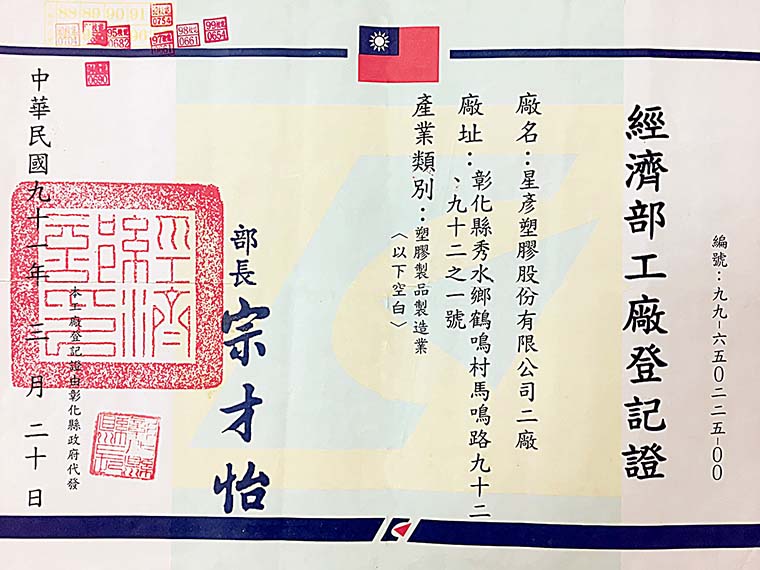 編號：九九－六五０二二五－００
經濟部工廠登記證
廠名：星彥塑膠股份有限公司二廠
廠址：彰化縣秀水鄉鶴鳴村馬鳴路九十二
、九十二之一號
產業類別：塑膠製品製造業
〈以下空白〉
部長 宗才怡
本工廠登記證由彰化縣政府代發
中華民國九十一年三月二十日
88 89 90 91
0754
95
0682
98
0661
99
0654